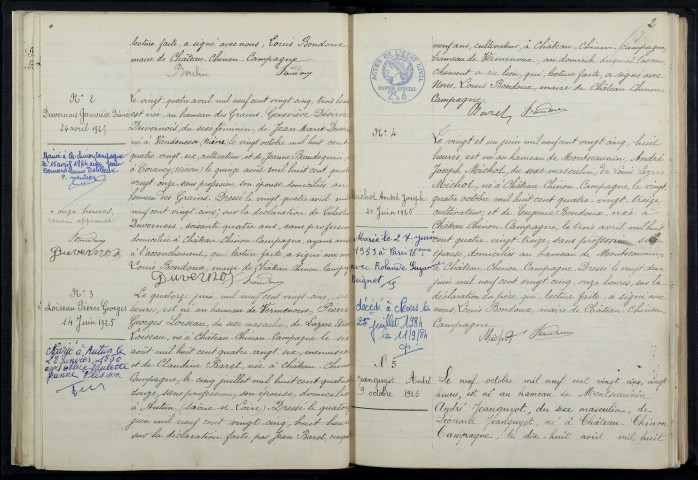 lecture faite, a signé avec nous, Louis Bondoux
maire de Château-Chinon-Campagne
N° 2
Duvernois Geneviève Désirée
24 avril 1925
Le vingt quatre avril mil neuf cent vingt cinq, trois heures
est née, au hameau des Grains, Geneviève Désirée
Duvernois, du sexe féminin, de Jean Marie Duver
né à Vandenesse (Nièvre) le vingt octobre mil huit cent
quatre vingt six, cultivateur, et de Jeanne
à Corancy (Nièvre) le quinze avril mil huit cent quatre
vingt onze, sans profession, son épouse, domiciliés au
hameau des Grains. Dressé le vingt quatre avril mil
neuf cent vingt cinq, sur la déclaration de Célestin
Duvernois, soixante quatre ans, sans profession
domiciliée à Château-Chinon-Campagne, ayant assisté
à l'accouchement, qui, lecture faite, a signé avec
Louis Bondoux, maire de Château-Chinon Campagne
Duvernois
Marié à Ch. Chinon Campagne
le avril 1944 avec Jean
Bernard Louis
onze heures,
renvoi approuvé
Duvernois
N° 3
Loiseau Pierre Georges
14 Juin 1925
Le quatorze juin, mil neuf cent vingt cinq,
heures, est né au hameau de Vermenoux, Pierre
Georges Loiseau, du sexe masculin, de Lazare
Loiseau, né à Château-Chinon Campagne le six
août mil huit cent quatre vingt six, menuisier
et de Claudine Baret, née à Château Chinon
Campagne, le cinq juillet mil huit cent quatre
douze, sans profession, son épouse, domiciliés
à Autun, (Saône et Loire). Dressé le quatorze
juin mil neuf cent vingt cinq, huit heures
sur la déclaration faite par Jean Baret,
Marié à Autun le
28 Janvier 1950
avec Paulette
Jeanne
2
neuf ans, cultivateur, à Château-Chinon-Campagne
hameau de Vermenoux, au domicile duquel l'accou
chement a eu lieu, qui, lecture faite, a signé avec
Nous, Louis Bondoux, maire de Château Chinon
Campagne.
Baret
ACTES DE L'ÉTAT CIVIL
PAPIER SPÉCIAL
N° 4
Michot André Joseph
21 Juin 1925
Le vingt et un juin mil neuf cent vingt cinq, huit
heures, est né au hameau de Montsaunin, André
Joseph Michot, du sexe masculin, de Louis Lazare
Michot, né à Château-Chinon Campagne, le vingt
octobre mil huit cent quatre vingt treize
cultivateur et de Eugénie Bondoux, née à
Château Chinon Campagne, le trois avril mil huit
cent quatre vingt treize, sans profession, son
épouse, domiciliés au hameau de Montsaunin
à Château-Chinon, Campagne. Dressé le vingt deux
juin mil neuf cent vingt cinq, onze heures, sur la
déclaration du père qui, lecture faite, a signé avec
nous, Louis Bondoux, maire de Château-Chinon
Campagne
Michot
Marié le 27 juin
1953 à Paris 18ème
avec Rolande Suzanne
décédé à Clovis le
25 juillet 1984
le 11/9/84
N° 5
Jeanguyot André
9 octobre 1925
Le neuf octobre mil neuf cent vingt cinq, vingt
heures, est né au hameau de Montsaunin
André Jeanguyot, du sexe masculin, de
Léonard Jeanguyot, né à Château Chinon
Campagne, le dix-huit août mil huit